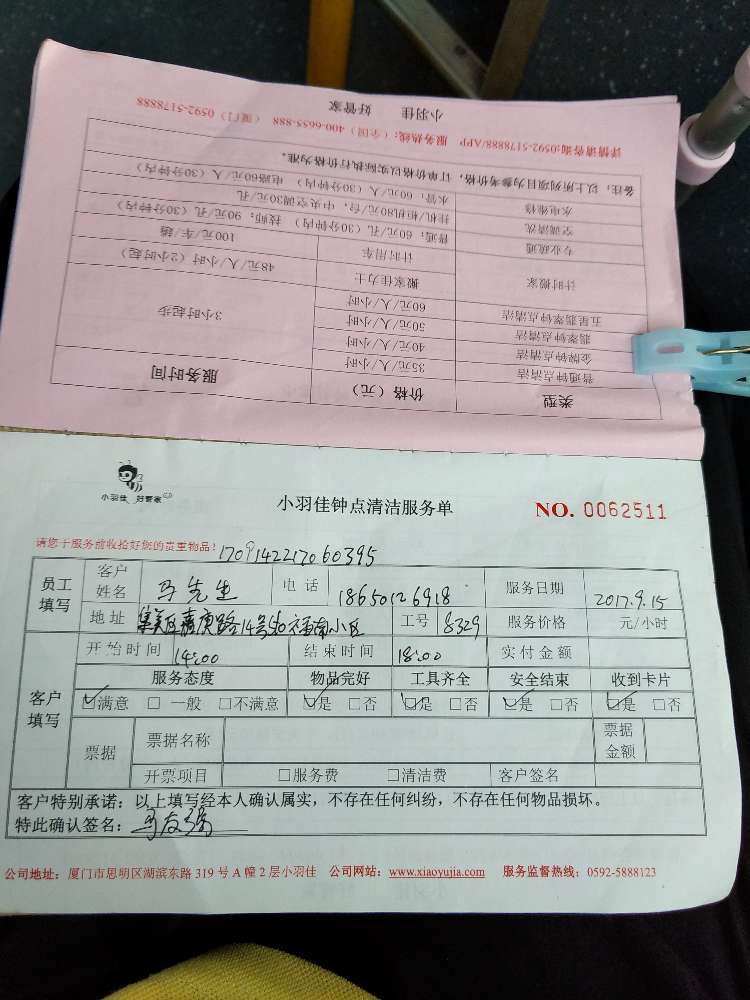 类型 价格（元） 服务时间
普通钟点清洁 35元/人/小时 3小时起步
金牌钟点清洁 40元/人/小时
翡翠钟点清洁 50元/人/小时
五星翡翠钟点清洁 60元/人/小时
计时搬家 搬家佳力士 48元/人/小时（2小时起）
计时用车 100元/车/趟
专业疏通 普通：60元/孔（30分钟内） 技师：90元/孔（30分钟内）
空调清洗 挂机/柜机80元/台，中央空调30元/孔
水电维修 水管：60元/人（30分钟内） 电路60元/人（30分钟内）
备注：以上所列项目为参考价格，订单价格以实际执行价格为准。
详情请咨询:0592-5178888/APP 服务热线：（全国）400-6655-888 （厦门）0592-5178888
小羽佳 好管家
小羽佳 好管家
小羽佳钟点清洁服务单
NO. 0062511
请您于服务前收拾好您的贵重物品！ 1709142217060395
员工填写 客户姓名 马先生 电话 18650126918 服务日期 2017.9.15
地址 集美区嘉庚路14号 福南小区 工号 8329 服务价格 元/小时
客户填写 开始时间 14:00 结束时间 18:00 实付金额
服务态度 物品完好 工具齐全 安全结束 收到卡片
☑满意 □一般 □不满意 ☑是 □否 ☑是 □否 ☑是 □否 ☑是 □否
票据 票据名称 票据金额
开票项目 □服务费 □清洁费 客户签名
客户特别承诺：以上填写经本人确认属实，不存在任何纠纷，不存在任何物品损坏。
特此确认签名：马友强
公司地址：厦门市思明区湖滨东路319号A幢2层小羽佳 公司网站：www.xiaoyujia.com 服务监督热线：0592-5888123